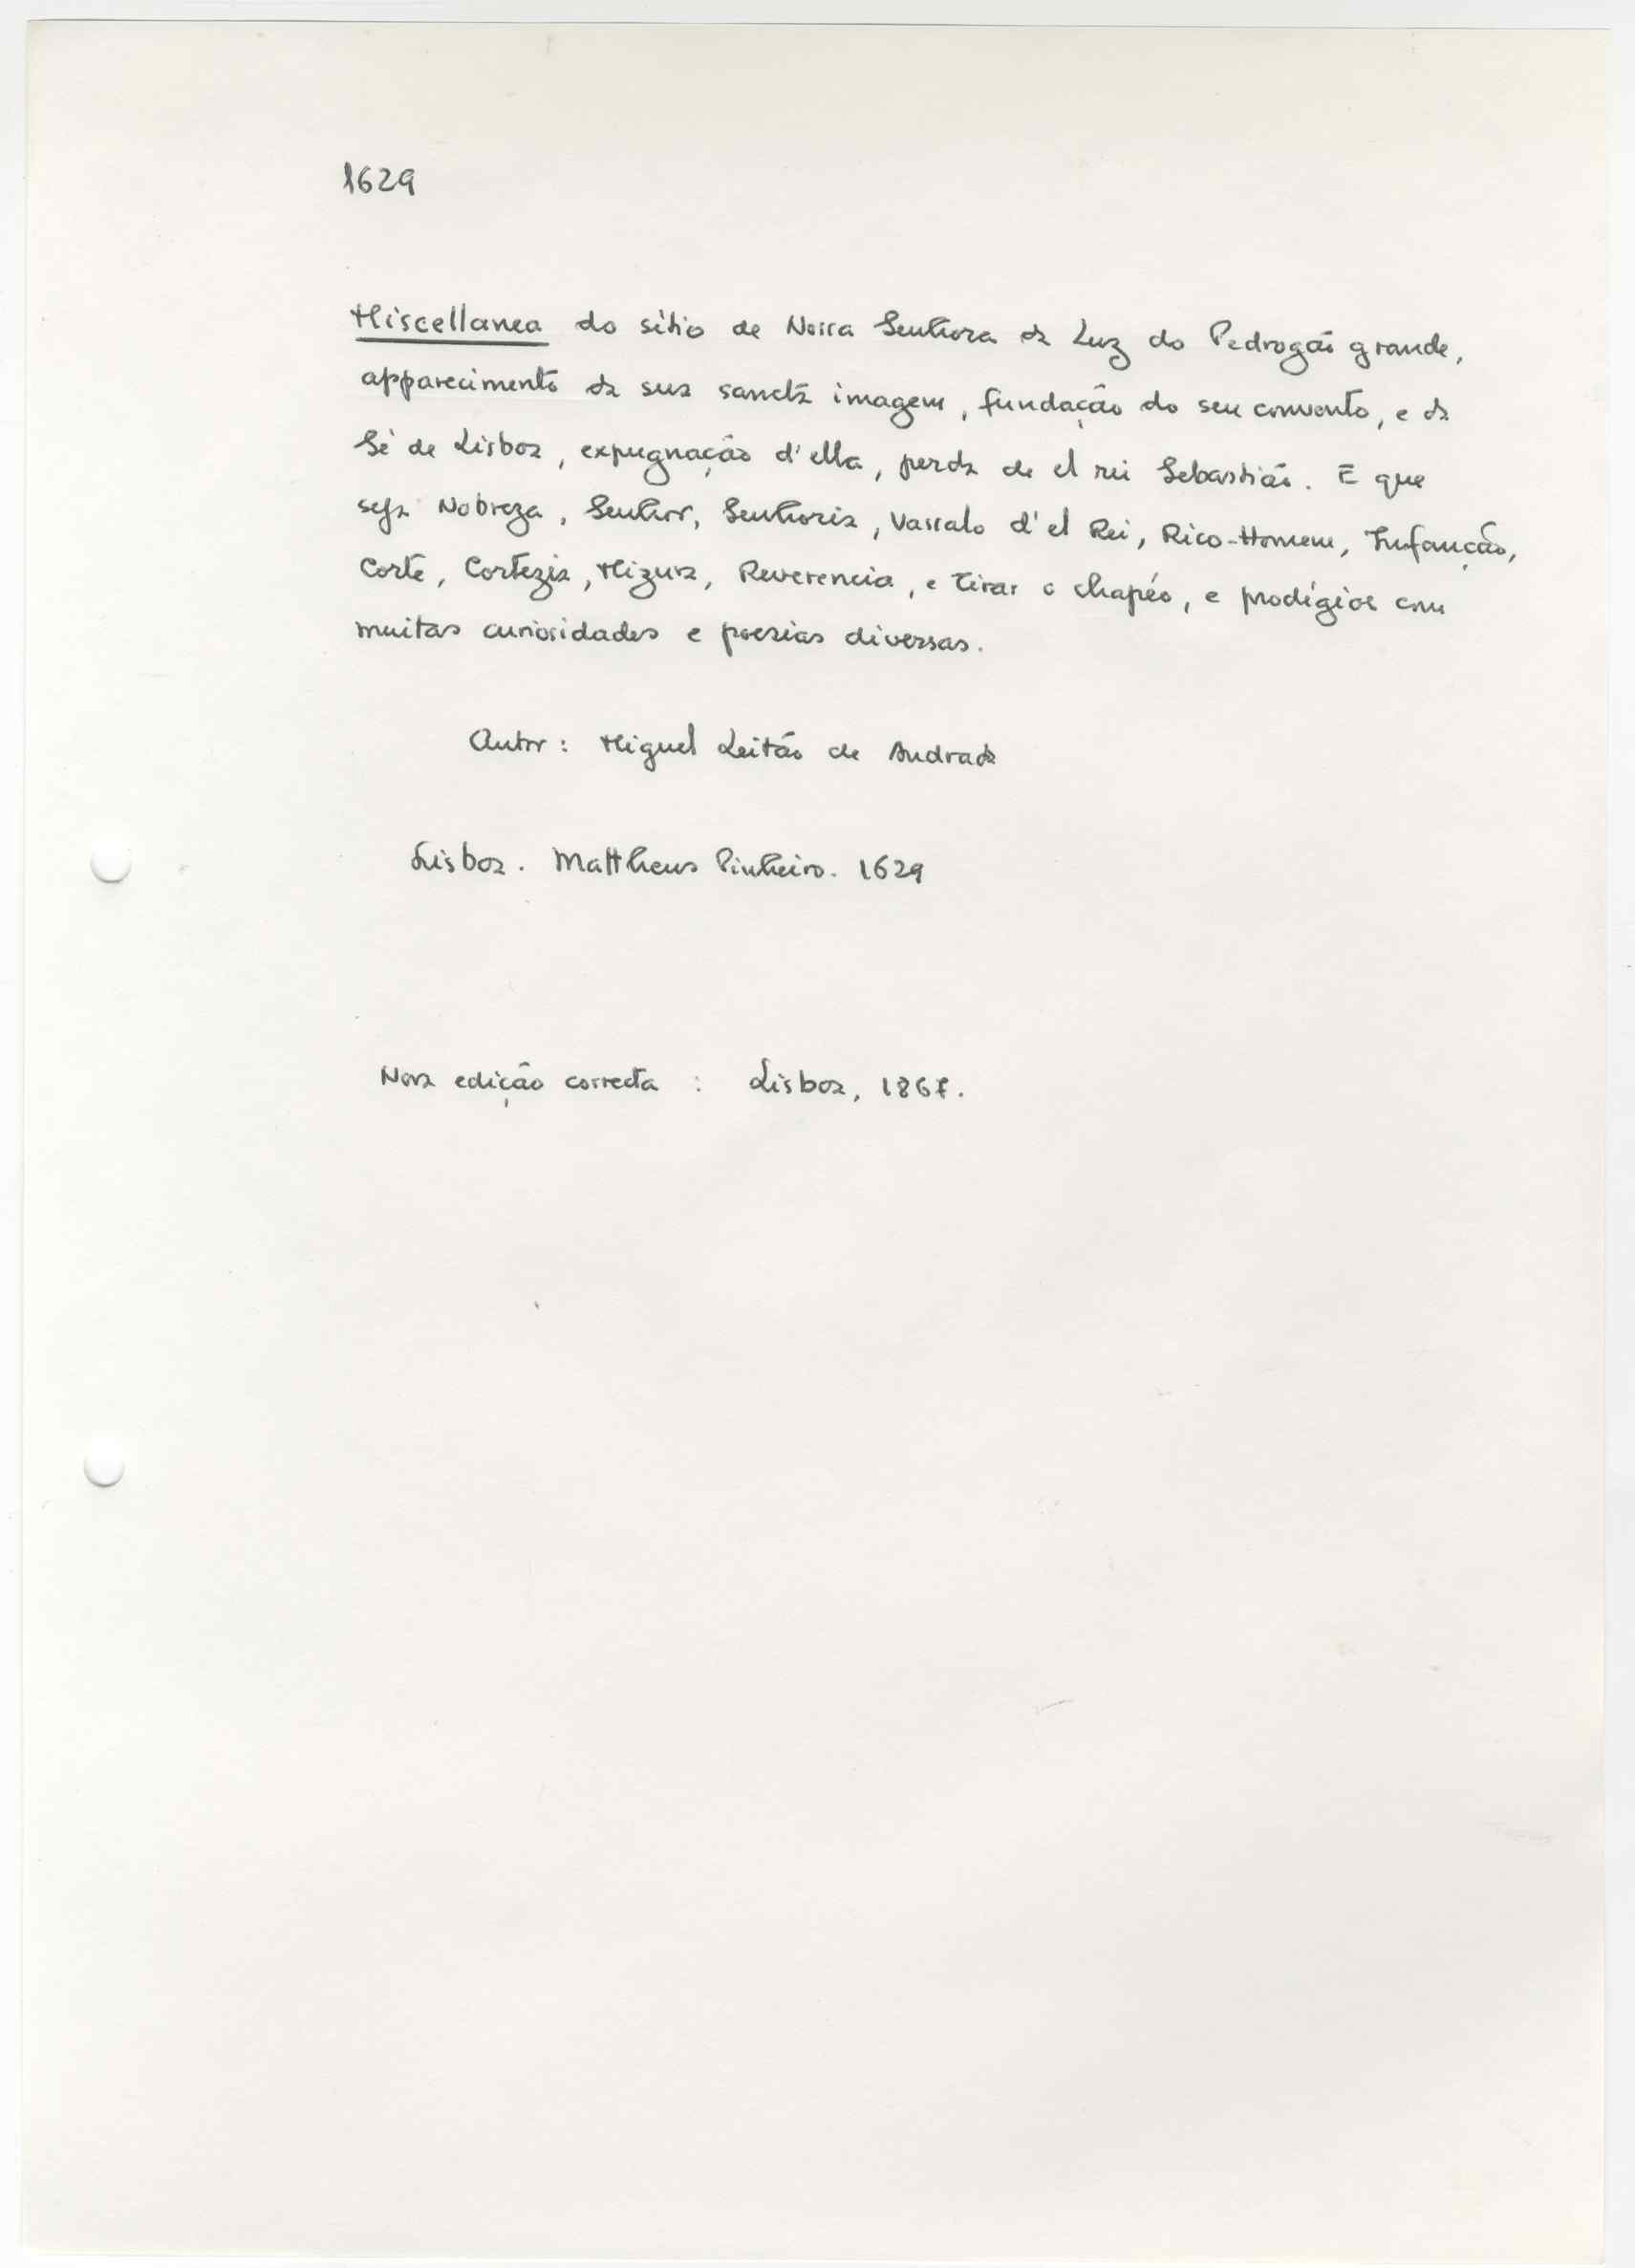 1629
Miscellanea do sítio de Nossa Senhora da Luz do Pedrogão grande,
apparecimento da sua sancta imagem, fundação do seu convento, e da
Sé de Lisboa, expugnação d'ella, perda de el rei Sebastião. E que
seja Nobreza, Senhor, Senhoria, Vassalo d'el Rei, Rico-Homem, Infanção,
Corte, Cortezia, Mizura, Reverencia, e tirar o chapéo, e prodígios com
muitas curiosidades e poesias diversas.
Autor: Miguel Leitão de Andrada
Lisboa. Mattheus Pinheiro. 1629
Nova edição correcta : Lisboa, 1867.